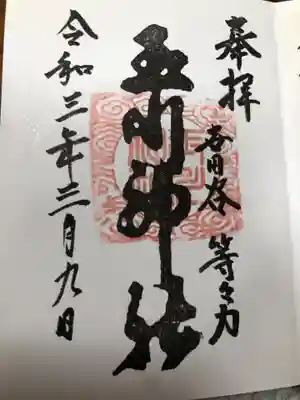 奉拝
世田谷 等々力
玉川神社
令和三年三月九日